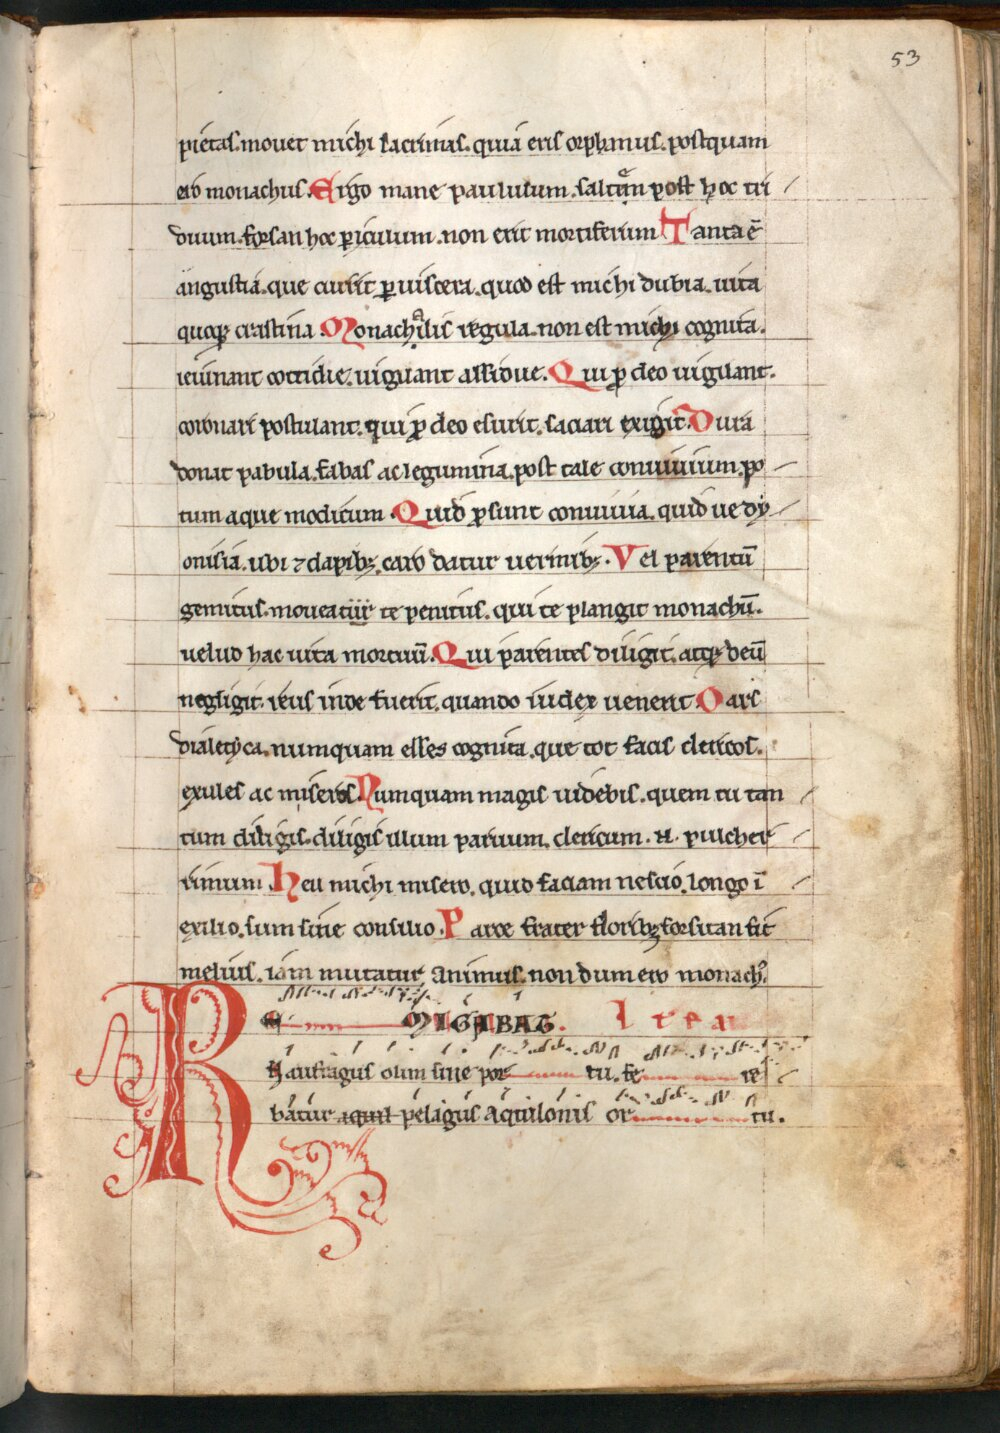 53
pietas. mouet michi lacrimas. quia eris orphanus. postquam
ero monachus. Ergo mane paululum. saltem post hoc tri
duum. forsan hoc piculum. non erit mortiferum Tanta ē
angustia. que currit p uiscera. quod est michi dubia. uita
quoqꝫ crastina. Monachalis regula. non est michi cognita.
ieiunant cottidie. uigilant assidue. Qui ꝓ deo uigilant.
coronari postulant. qui ꝓ deo esurit. saciari exigit. Dura
donat pabula. fabas ac legumina. post tale conuiuium. po
tum aque modicum. Quid ꝓsunt conuiuia. quid ue dy
onisia. ubi ⁊ dapibꝫ. caro datur uermibꝫ. Vel parentū
gemitus. moueatur te penitus. qui te plangit monachū.
uelud hac uita mortuū. Qui parentes diligit. atqꝫ deū
negligit. reus inde fuerit. quando iudex uenerit O ars
dialetyca. numquam esses cognita. que tot facis clericos.
exules ac miseros. Numquam magis uidebis. quem tu tan
tum diligis. diligis illum paruum. clericum. N. pulcher
rimum. Heu michi misero. quid faciam nescio. longo ī
exilio. sum sine consilio. Parce frater floribꝫ forsitan fit
melius. iam mutatur animus. non dum ero monachꝰ.
R E MIGABAT. Item
Naufragus olim sine por tu. fe re
batur pelagus aquilonis or tu.